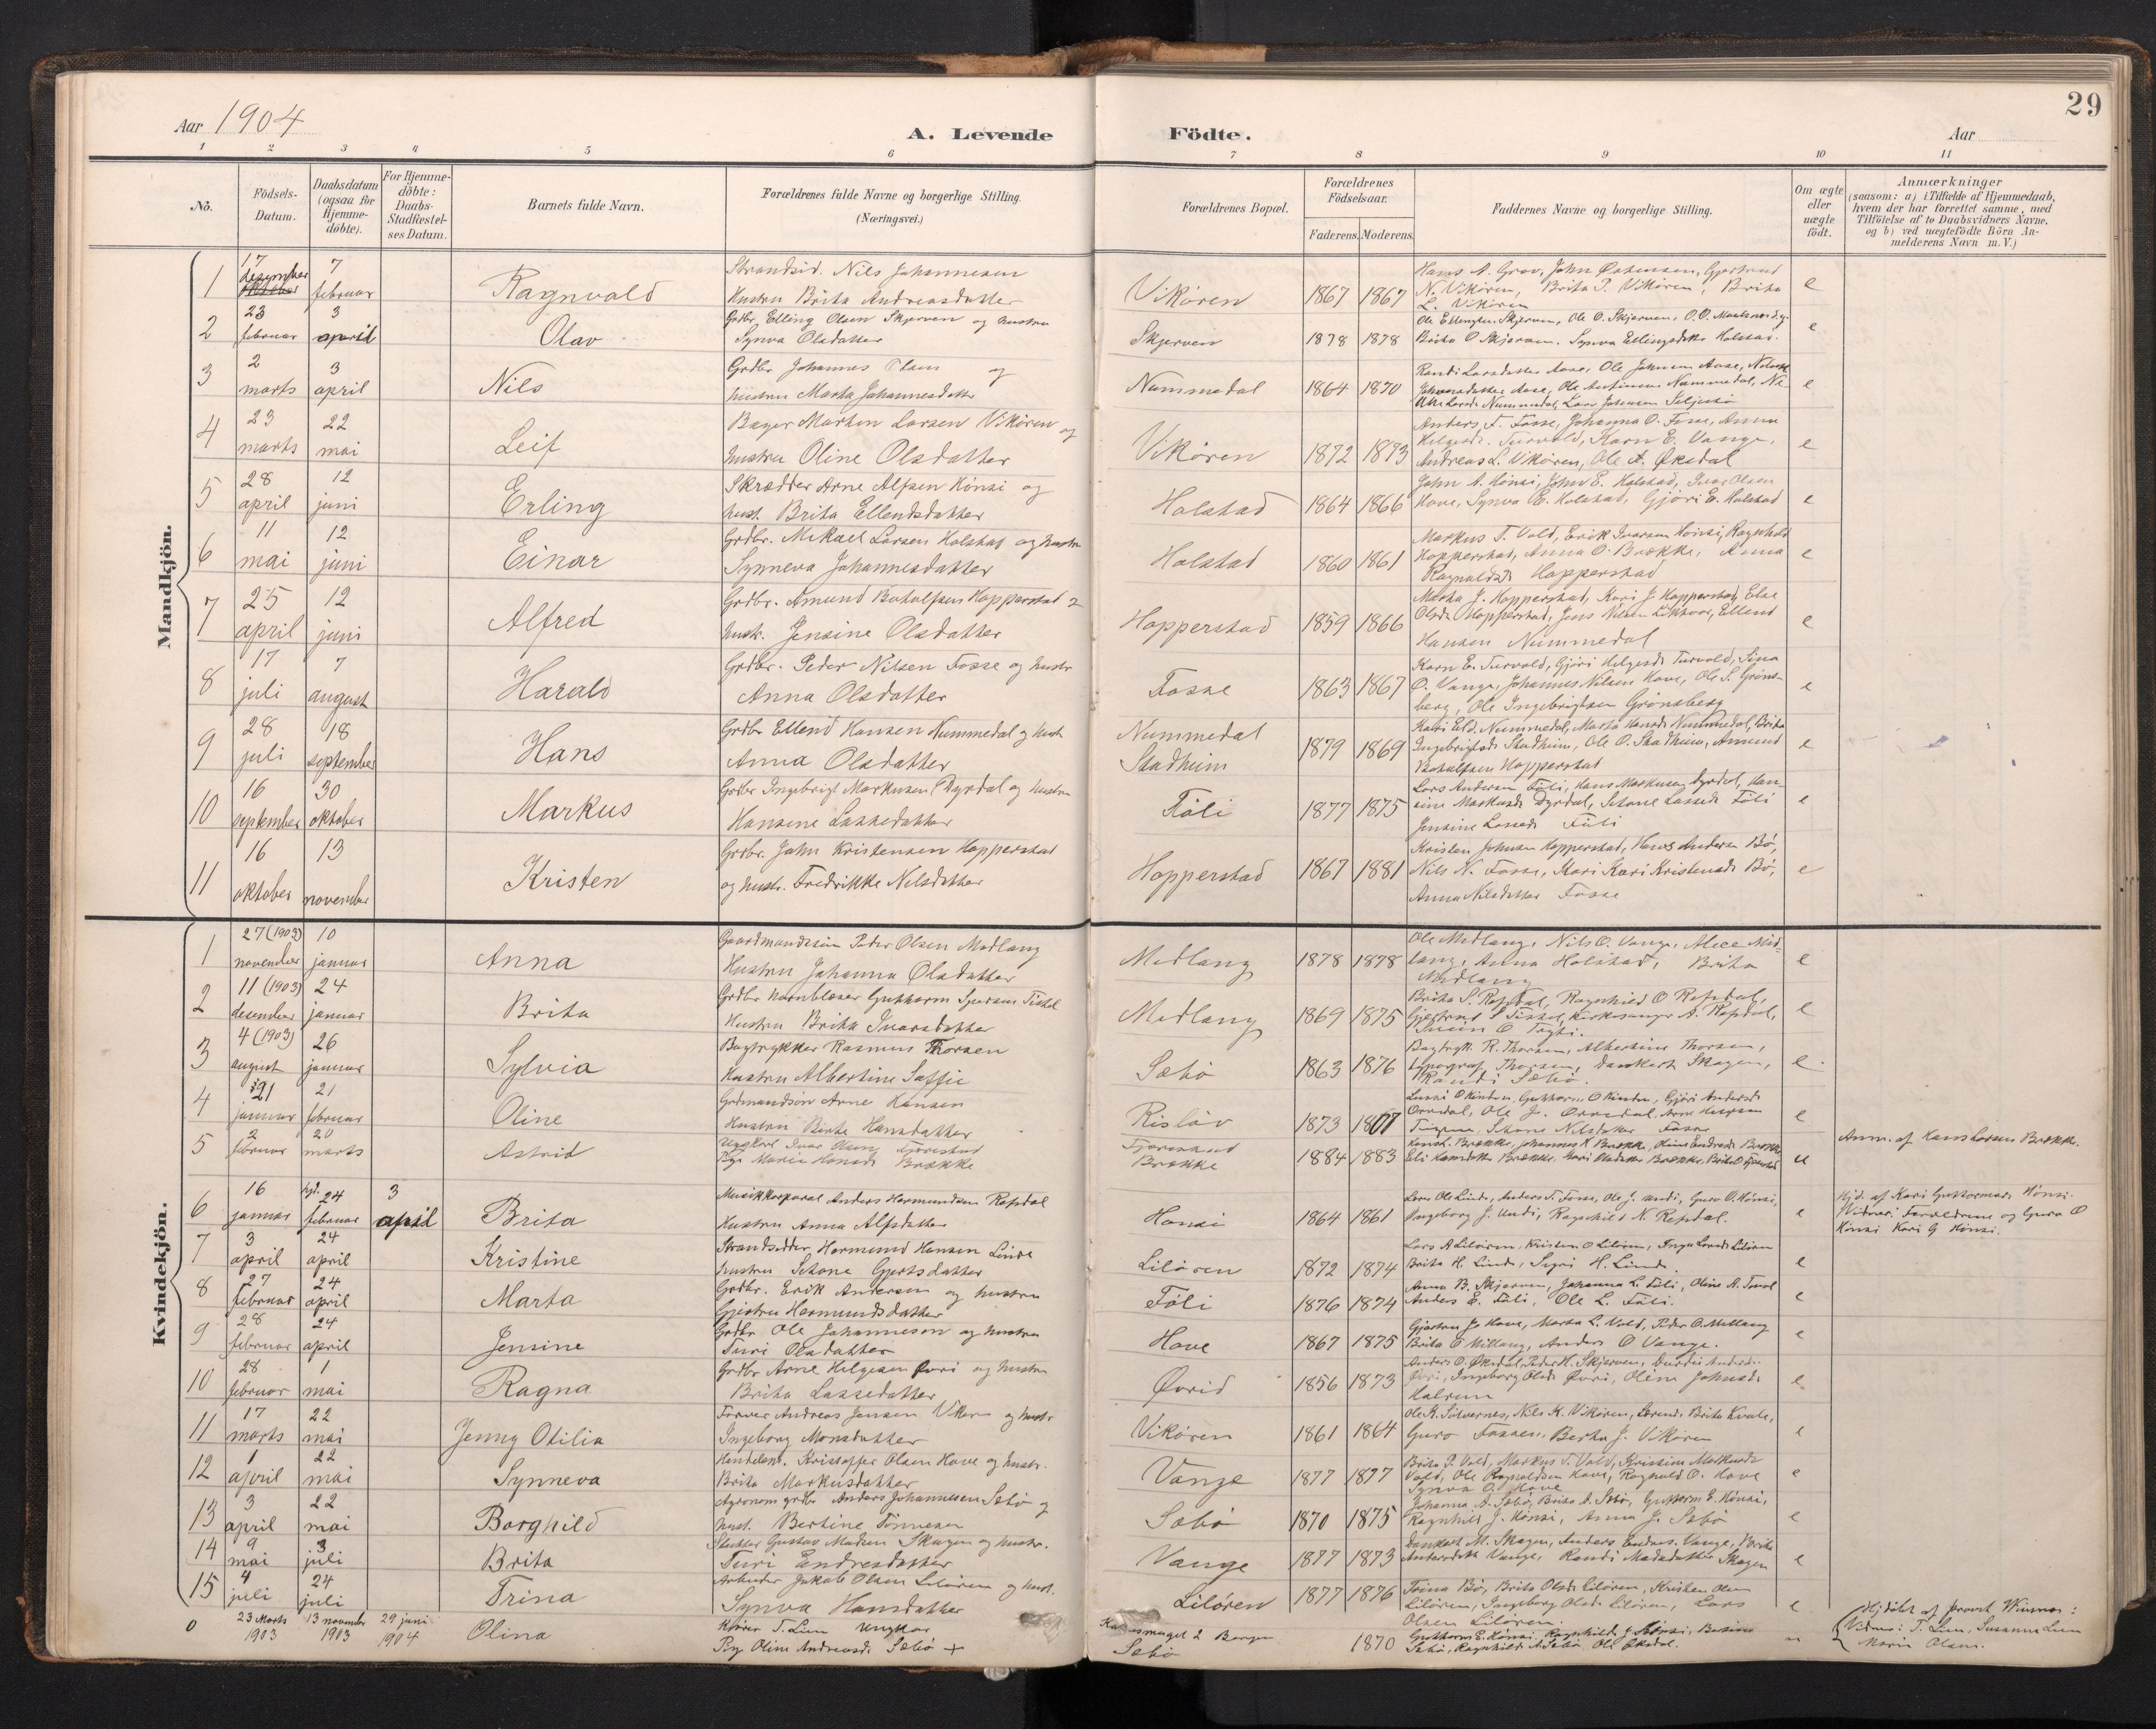 29
Aar 1904
A. Levende Födte.
Aar
1 2 3 4 5 6 7 8 9 10 11
No.
Födsels-
Datum.
Daabsdatum
(ogsaa for
Hjemme-
döbte).
For Hjemme-
döbte:
Daabs-
Stadfæstel-
ses Datum.
Barnets fulde Navn.
Forældrenes fulde Navne og borgerlige Stilling.
(Næringsvei.)
Forældrenes Bopæl.
Forældrenes
Födselsaar.
Faderens. Moderens.
Faddernes Navne og borgerlige Stilling.
Om ægte
eller
uægte
födt.
Anmærkninger
(saasom: a) i Tilfælde af Hjemmedaab,
hvem der har forrettet samme, med
Tilföielse af to Daabsvidners Navne.
og b) ved uægtefödte Börn An-
melderens Navn m. V.)
Mandkjön.
1 17 desember 7 februar Ragnvald
Strandsid. Nils Johannesen
Hustru Brita Andreasdatter
Vikøren 1867 1867
Hans A. Grov, John Østensen, Gjertrud
N. Vikøren, Brita P. Vikøren, Brita
L. Vikøren
e
2 23 februar 3 april Olav
Grdbr Elling Olsen Skjerven og hustru
Synva Olsdatter
Skjerven 1878 1878
Brita O Skjerven. Synva Ellingsdatter Holstad.
e
3 2 marts 3 april Nils
Grdbr Johannes Olsen og
hustru Marta Johannesdatter
Nummedal 1864 1870
Randi Larsdatter Aase, Ole Johnsen Aase,
e
4 23 marts 22 mai Leif
Bager Marten Larsen Vikøren og
hustru Oline Olsdatter
Vikøren 1872 1873
Anders T. Fosse, Johanna O. Fosse, Anna
Helgesdr. Turvold, Karn E. Vange,
Andreas L. Vikøren, Ole A. Øksdal
e
5 28 april 12 juni Erling
Skrædder Arne Alfsen Hönsi og
hust. Brita Ellendsdatter
Holstad 1864 1866
John A. Hönsi, John E. Holstad, Ivar Olsen
Hove, Synva E. Holstad, Gjöri E. Holstad
e
6 11 mai 12 juni Einar
Grdbr. Mikael Larsen Holstad og hustru
Synneva Johannesdatter
Holstad 1860 1861
Markus T. Vold, Erik Ivarsen Hönsi, Ragnhild
Hopperstad, Anna O. Brække, Anna
Ragnvaldsd. Hopperstad
e
7 25 april 12 juni Alfred
Grdbr. Amund Botolfsen Hopperstad
hustr. Jensine Olsdatter
Hopperstad 1859 1866
Marta J. Hopperstad, Kari J. Hopperstad, Else
Olsdr. Hopperstad, Jens Nilsen Likhove, Ellend
Hansen Nummedal
e
8 17 juli 7 august Harald
Grdbr. Peder Nilsen Fosse og hustr
Anna Olsdatter
Fosse 1863 1867
Karn E. Turvold, Gjöri Helgesdr Turvold, Sina
O. Vange, Johannes Nilsen Hove, Ole S. Gröns-
berg, Ole Ingebrigtsen Grönsberg
e
9 28 juli 18 september Hans
Grdbr Ellend Hansen Nummedal og hust
Anna Olsdatter
Nummedal
Stadheim 1879 1869
Kari Eld. Nummedal, Marta Hansdr Nummedal, Brita
Ingebrigtsdr Stadheim, Ole O. Stadheim, Amund
Botolfsen Hopperstad
e
10 16 september 30 oktober Markus
Grdbr Ingebrigt Markusen Dyrdal og hustru
Hansine Lassedatter
Föli 1877 1875
Lars Andersen Föli, Hans Markusen Dyrdal, Han-
sine Markusdr Dyrdal, Setone Lassedr Föli
Jensine Lassedr Föli
e
11 16 oktober 13 november Kristen
Grdbr. John Kristensen Hopperstad
og hustr. Fredrikke Nilsdatter
Hopperstad 1867 1881
Kristen Johnsen Hopperstad, Hans Andersen Bö,
Nils N. Fosse, Kari Kari Kristensdr Bö,
Anna Nilsdatter Fosse
e
Kvindekjön.
1 27 (1903) november 10 januar Anna
Gaardmandssön Peder Olsen Midlang
Hustru Johanna Olsdatter
Midlang 1878 1878
Ole Midlang, Nils O. Vange, Alice Mid-
lang, Anna Holstad, Brita
Midlang
e
2 11 (1903) desember 24 januar Brita
Grdbr Hornblæser Guttorm Sjursen Tistel
Hustru Brita Ivarsdatter
Midlang 1869 1875
Brita S. Refsdal, Ragnhild O Refsdal,
Gjertrud S Tistel, Kirkesanger A. Refsdal,
e
3 4 (1903) august 26 januar Sylvia
Bogtrykker Rasmus Thorsen
Hustru Albertine Saffic
Sæbö 1863 1876
Bogtrykk. R. Thorsen, Albertine Thorsen,
typograf Thorsen, Dankert Skagen,
Randi Sæbö.
e
4 21 januar 21 februar Oline
Grdmandsön Arne Hansen
Hustru Birte Hansdatter
Rislöv 1873 1867
e
5 2 februar 20 marts Astrid
Ungkarl Ivar Olsen Tjorestad
Pige Marie Hansdr Brække
Tjorestad
Brække 1884 1883
u
Anm. af Hans Larsen Brække.
6 16 januar hjd. 24 februar 3 april Brita
Musikkorporal Anders Hermundsen Refsdal
Hustru Anna Alfsdatter
Hønsi 1864 1861
Lars Ols Linde, Anders T. Fosse, Ole J. Undi, Guro O. Hönsi,
Ingeborg J. Undi, Ragnhild N. Refsdal.
e
Hjd. af Kari Guttormsdr Hönsi.
Vidner: Forældrene og Guro O
Hönsi Kari G Hönsi.
7 3 april 24 april Kristine
Strandsidder Hermund Hansen Linde
hustru Setone Gjertsdatter
Lilören 1872 1874
Lars A Lilören, Kristen O Lilören, Inga Larsdr Lilören
Brita H. Linde, Sigri H. Linde
e
8 27 februar 24 april Marta
Grdbr. Erik Andersen og hustru
Gjertru Hermundsdatter
Föli 1876 1874
Anna B. Skjerven, Johanna L. Föli, Oline A.
Anders E. Föli, Ole L. Föli.
e
9 28 februar 24 april Jensine
Grdbr Ole Johannesen og hustru
Turi Olsdatter
Hove 1867 1875
Gjertru J. Hove, Marta L. Vold, Peder O. Midlang
Brita O Midlang, Anders O Vange.
e
10 28 februar 1 mai Ragna
Grdbr Arne Helgesen Øvri og hustru
Brita Lassedatter
Øvrid 1856 1873
Anders O. Øksdal, Peder H. Skjerven,
Øvri, Ingeborg Olsdr Øvri, Oline Johnsdr
e
11 17 marts 22 mai Jenny Otilia
Farver Andreas Jensen og hustr
Ingeborg Monsdatter
Vikøren 1861 1864
Ole K. Sitvernes, Nils K. Vikøren, Brita Kvale,
Guro Berta J. Vikøren
e
12 1 april 22 mai Synneva
Handelsm. Kristoffer Olsen Hove og hustr.
Brita Markusdatter
Vange 1877 1877
Brita P. Vold, Markus T. Vold, Kristine Markusdr
Vold, Ole Ragnvaldsen Hove, Ragnvald O. Hove
Synva O. Hove
e
13 3 april 22 mai Borghild
Agronom grdbr Anders Johannesen Sæbö og
hust. Bertine Tönnesen
Sæbö 1870 1875
Johanna A. Sæbö, Brita A. Sæbö, Guttorm E. Hönsi,
Ragnhild J. Hönsi, Anna J. Sæbö
e
14 9 mai 3 juli Brita
Gustav Madsen Skagen og hustr.
Turi Endresdatter
Vange 1877 1873
Dankert M. Skagen, Anders Endres. Vange, Brita
Andersdatt Vange, Randi Madsdatter Skagen
e
15 4 juli 24 juli Trina
Arbeider Jakob Olsen Lilören og hust.
Synva Hansdatter
Lilören 1877 1876
Trina Bö, Brita Olsdr Lilören, Kristen Olsen
Lilören, Ingeborg Olsdr Lilören, Lars
Olsen Lilören.
e
0 23 Marts 1903 13 november 1903 29 juni 1904 Olina
T. Lien Ungkar
Pige Oline Andreasdr Sæbö +
2 Bergen
Sæbö 1870
Guttorm E. Hönsi, Ragnhild J. Hönsi,
Sæbö, Ragnhild A Sæbö, Ole Øksdal.
u
Hjdöbt af provst :
Vidner: T. Lien, Susanne Lien
Maria Olsen.